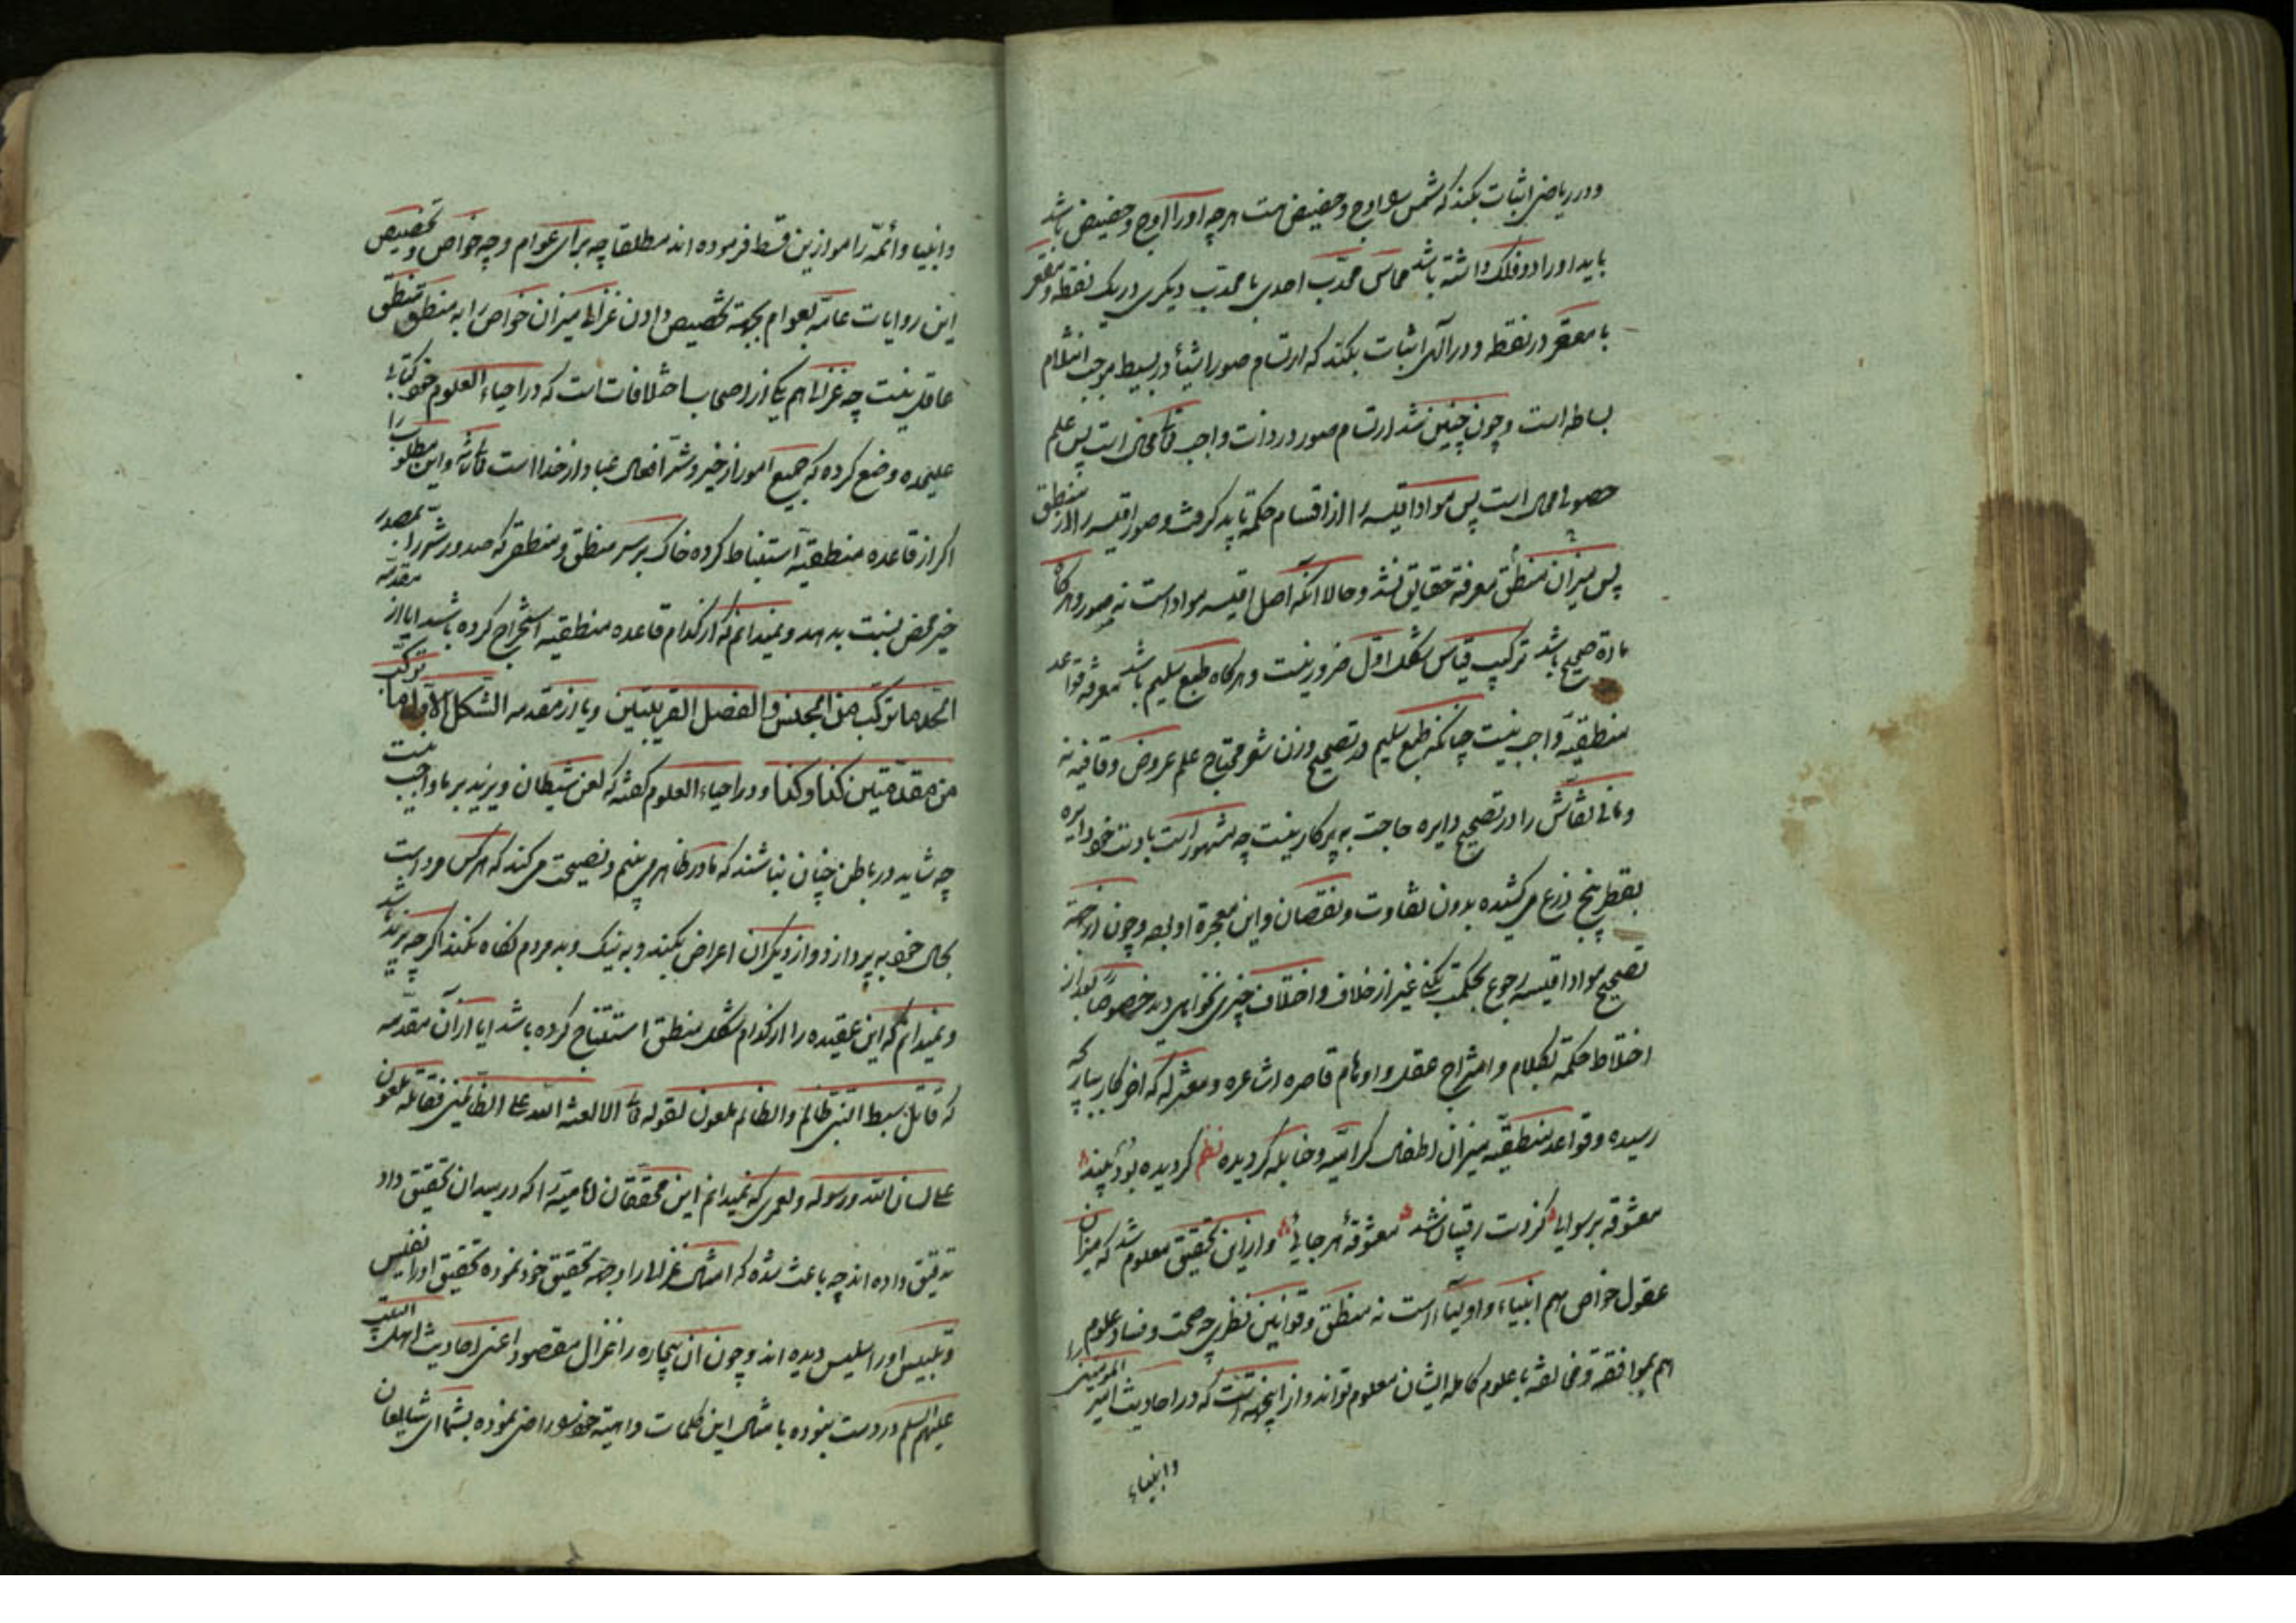 ودر ریاضی اثبات بکند که شمس را اوج و حضیض هست هر چه او را اوج و حضیض باشد
باید او را دو فلک داشته باشد مماس محدّب احدی با محدّب دیکری در یک نقطه و مقعر
با مقعر در نقطه و در آلهی اثبات بکند که ارتسام صور اشیأ در بسیط موجب انثلام
بساطه است و چون چنین شد ارتسام صور در ذات واجب تعالی محال است پس علم
حصولی محال است پس مواد اقیسه را از اقسام حکمة باید کرفت و صور اقیسه را از منطق
پس میزان منطق معرفة حقایق نشد و حالا آنکه اصل اقیسه مواد است نه صور و هرکاه
مادّة صحیح باشد ترکیب قیاس شکل اوّل ضرور نیست و هرکاه طبع سلیم باشد معرفة قواعد
منطقیّه واجب نیست چنانکه طبع سلیم در تصحیح وزن شعر محتاج علم عروض و قافیه نه
و مانی نقّاش را در تصحیح دایره حاجت به پرکار نیست چه مشهور است با دست خود دایره
بقطر پنج ذرع می کشیده بدون تفاوت و نقصان و این معجزه او بود و چون از جهة
تصحیح مواد اقیسه رجوع بحکمت بکنی غیر از خلاف و اختلاف چیزی نخواهی دید خصوصاً بعد از
اختلاط حکمة بکلام و امتزاج عقل و اوهام قاصره اشاعره و معتزله که اخر کار بجائی که
رسیده و قواعد منطقیّه میزان اطفال کرامیّه و حنابله کردیده نظم کردیده بود پسند
معشوقه برسوایی کز دست رقیبان شد معشوقهٔ هر جائی و از این تحقیق معلوم شد که میزان
عقول خواص هم انبیاء و اولیاء است نه منطق و قوانین نظری چه صحت و فساد علوم را
هم بموافقه و مخالفه با علوم کامله ایشان معلوم تواند و از اینجهة است که در احادیث امیر المؤمنین
وانبیاء
وانبیا و أئمّه را موازین قسط فرموده اند مطلقا چه برای عوام و چه خواص و تخصیص
این روایات عامّه بعوام بجهة تخصیص دادن غزالی میزان خواص را به منطق منطق
عاقل نیست چه غزالی هم یکی از اصحاب اختلافات است که در احیاء العلوم خود کتابی
علیحده وضع کرده که جمیع امور از خیر و شر افعال عباد از خدا است تعالی شانه و این مطلوب را
اکر از قاعده منطقیّه استنباط کرده خاک بر سر منطق و منطقی که صدور شر را بمصدر
خیر محض نسبت بدهد و نمیدانم که از کدام قاعده منطقیه استخراج کرده باشد ایا از مقدّمه
الحد ما ترکّب من الجنس و الفصل القریبین و یا از مقدمه الشکل الاوّل ما ترکّب
من مقدّمتین کذا و کذا و در احیاء العلوم کفته که لعن شیطان و یزید بر ما واجب نیست
چه شاید در باطن چنان نباشند که ما در ظاهر می بینیم و نصیحت می کند که هر کس مرد است
بحال خود به پردازد و از دیکران اعراض بکند و به نیک و بد مردم نکاه نکند اکرچه یزید باشد
و نمیدانم که این عقیده را از کدام شکل منطق استنتاج کرده باشد ایا از آن مقدّمه
که قاتل سبط النبی ظالم والظالم ملعون لقوله تعالی الا لعنة الله علی الظالمین فقاتله ملعون
علی لسان الله و رسوله و لعمری که نمیدانم این محققان امامیّه را که در میدان تحقیق داد
تدقیق داده اند چه باعث شده که امثال غزالی را وجهة تحقیق خود نموده تحقیق او را نفیس
و تلبیس او را سلیس دیده اند و چون ان بیچاره را غزال مقصود اعنی احادیث اهل البیت
علیهم السلم در دست نبوده با مثال این کلمات واهیة خود را راضی نموده بشما ای شایعان